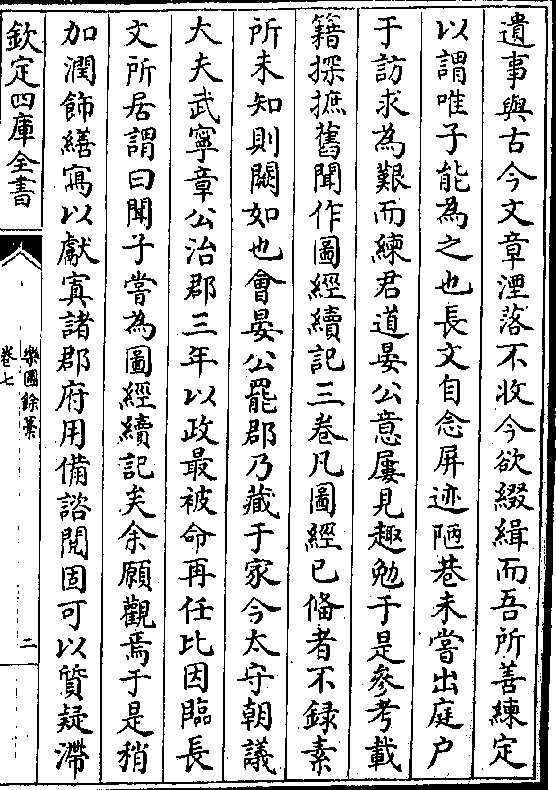 遺事與古今文章湮落不收今欲綴緝而吾所善練定
以謂唯子能為之也長文自念屏迹陋巷未嘗出庭户
于訪求為艱而練君道晏公意屢見趣勉于是參考載
籍探摭舊聞作圖經續記三卷凡圖經已備者不録素
所未知則闕如也會晏公罷郡乃藏于家今太守朝議
大夫武寧章公治郡三年以政最被命再任比因臨長
文所居謂曰聞子嘗為圖經續記矣余願觀焉于是稍
加潤飾繕寫以獻寘諸郡府用備諮閱固可以質疑滯
欽定四庫全書
樂圃餘藁
卷七
二